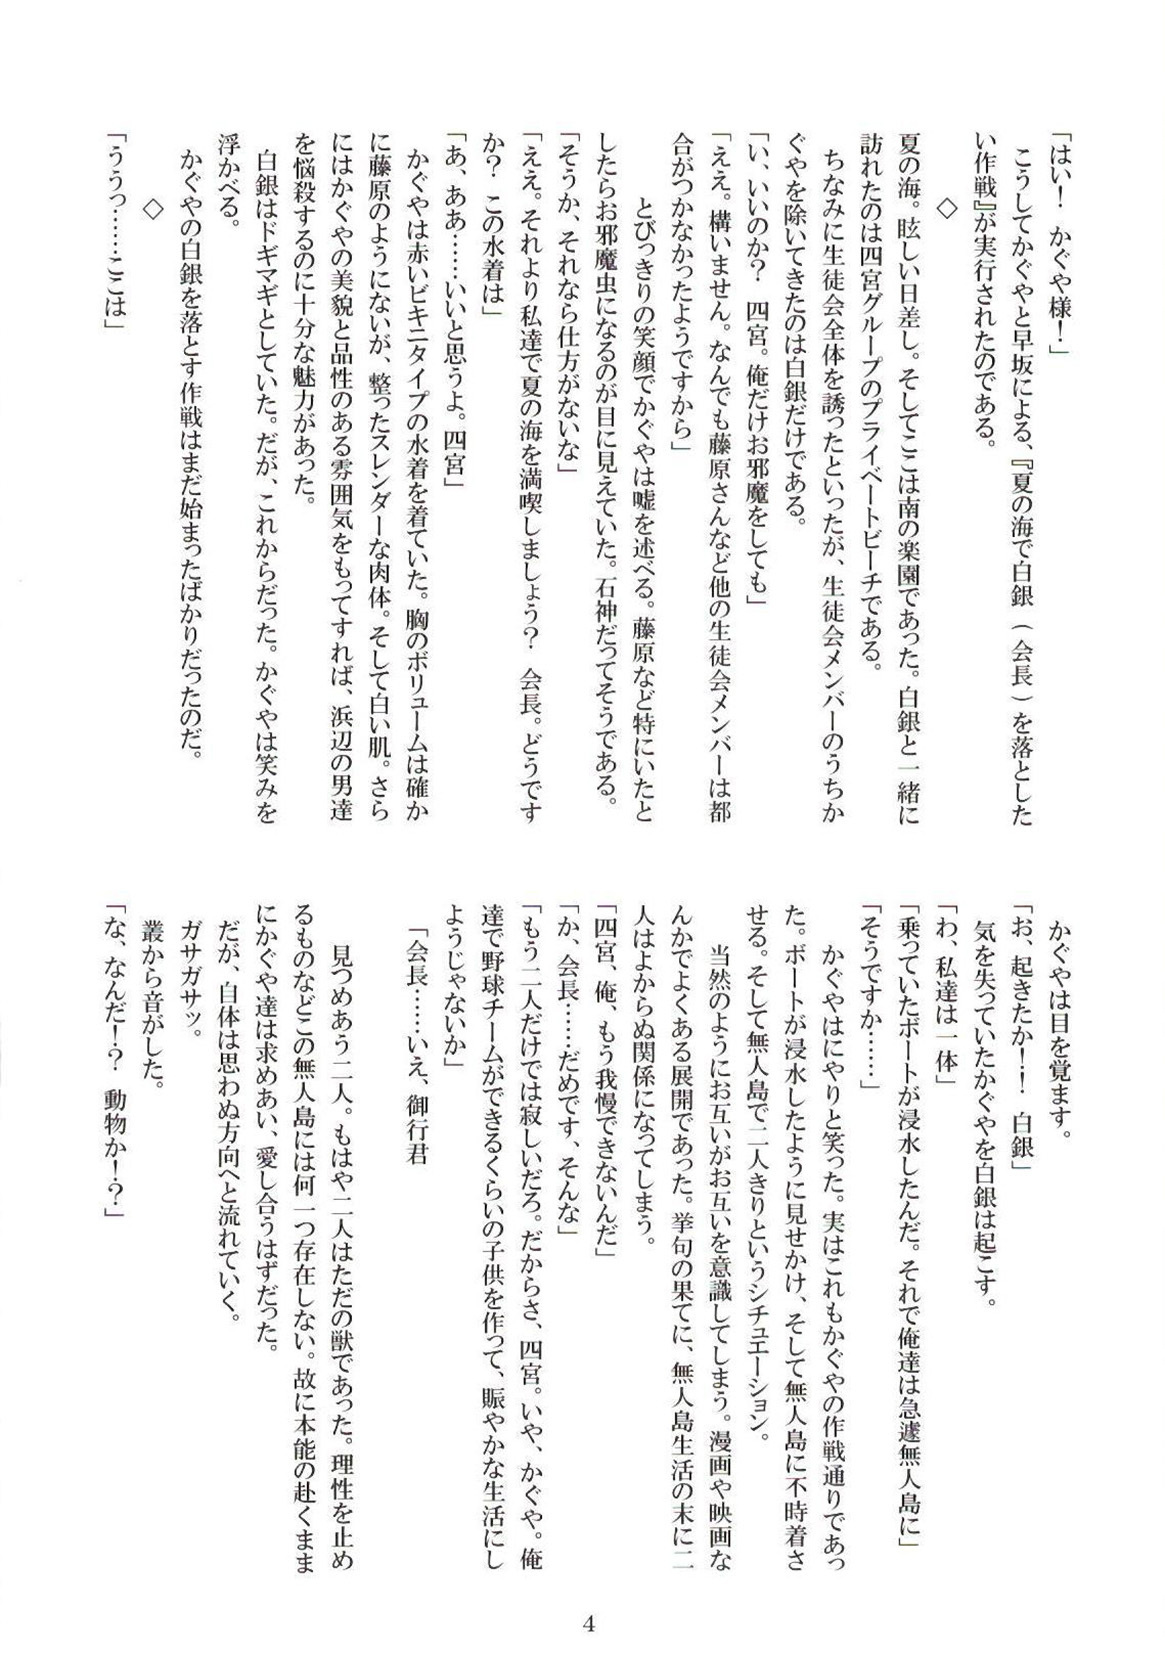 「はい！　かぐや様！」
　こうしてかぐやと早坂による、『夏の海で白銀（会長）を落とした
い作戦』が実行されたのである。
◇
夏の海。眩しい日差し。そしてここは南の楽園であった。白銀と一緒に
訪れたのは四宮グループのプライベートビーチである。
　ちなみに生徒会全体を誘ったといったが、生徒会メンバーのうちか
ぐやを除いてきたのは白銀だけである。
「い、いいのか？　四宮。俺だけお邪魔をしても」
「ええ。構いません。なんでも藤原さんなど他の生徒会メンバーは都
合がつかなかったようですから」
　とびっきりの笑顔でかぐやは嘘を述べる。藤原など特にいたと
したらお邪魔虫になるのが目に見えていた。石神だってそうである。
「そうか、それなら仕方がないな」
「ええ。それより私達で夏の海を満喫しましょう？　会長。どうです
か？　この水着は」
「あ、ああ……いいと思うよ。四宮」
　かぐやは赤いビキニタイプの水着を着ていた。胸のボリュームは確か
に藤原のようにないが、整ったスレンダーな肉体。そして白い肌。さら
にはかぐやの美貌と品性のある雰囲気をもってすれば、浜辺の男達
を悩殺するのに十分な魅力があった。
　白銀はドギマギとしていた。だが、これからだった。かぐやは笑みを
浮かべる。
　かぐやの白銀を落とす作戦はまだ始まったばかりだったのだ。
◇
「ううっ……ここは」
　かぐやは目を覚ます。
「お、起きたか！！　白銀」
　気を失っていたかぐやを白銀は起こす。
「わ、私達は一体」
「乗っていたボートが浸水したんだ。それで俺達は急遽無人島に」
「そうですか……」
　かぐやはにやりと笑った。実はこれもかぐやの作戦通りであっ
た。ボートが浸水したように見せかけ、そして無人島に不時着さ
せる。そして無人島で二人きりというシチュエーション。
　当然のようにお互いがお互いを意識してしまう。漫画や映画な
んかでよくある展開であった。挙句の果てに、無人島生活の末に二
人はよからぬ関係になってしまう。
「四宮、俺、もう我慢できないんだ」
「か、会長……だめです、そんな」
「もう二人だけでは寂しいだろ。だからさ、四宮。いや、かぐや。俺
達で野球チームができるくらいの子供を作って、賑やかな生活にし
ようじゃないか」
「会長……いえ、御行君
　見つめあう二人。もはや二人はただの獣であった。理性を止め
るものなどこの無人島には何一つ存在しない。故に本能の赴くまま
にかぐや達は求めあい、愛し合うはずだった。
　だが、自体は思わぬ方向へと流れていく。
　ガサガサッ。
　叢から音がした。
「な、なんだ！？　動物か！？」
4